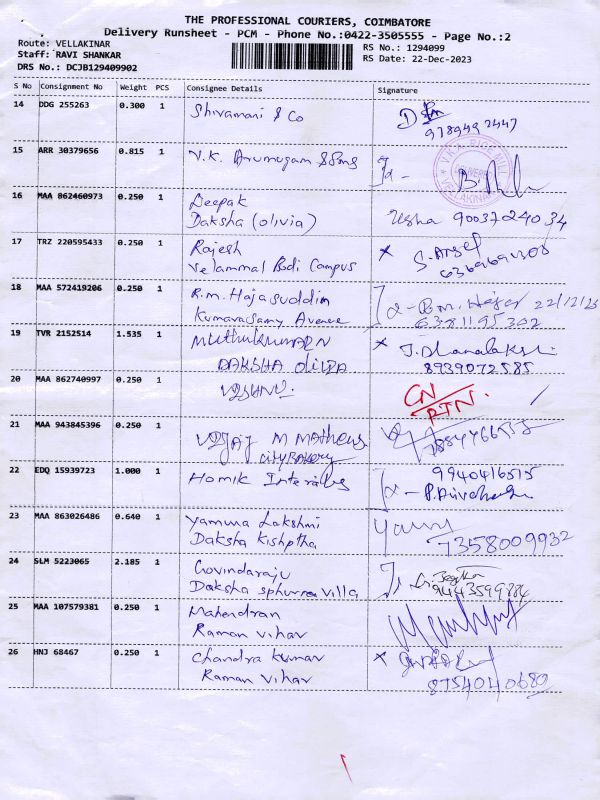 THE PROFESSIONAL COURIERS, COIMBATORE
Delivery Runsheet - PCM - Phone No.:0422-3505555 - Page No.:2
Route: VELLAKINAR
RS No.: 1294099
Staff: RAVI SHANKAR
RS Date: 22-Dec-2023
DRS No.: DCJB129409902
S No Consignment No Weight PCS Consignee Details Signature
14 DDG 255263 0.300 1 Shivamani & Co
9789492447
15 ARR 30379656 0.815 1 V.K. Arumugam & Sons
16 MAA 862460973 0.250 1 Deepak
Daksha (olivia) Usha 900370240 34
17 TRZ 220595433 0.250 1 Rajesh
Velammal Bodi Campus
18 MAA 572419206 0.250 1 R.m. Hajasuddin 22/12/23
Kumarasamy Avenue 6381195302
19 TVR 2152514 1.535 1 Muthukumaran J. Dhanalakshi
DAKSHA 8939072585
20 MAA 862740997 0.250 1 CN
RTN.
21 MAA 943845396 0.250 1 VIJAY M Mathews
City Bakery
22 EDQ 15939723 1.000 1 Homik 9940416515
23 MAA 863026486 0.640 1 Yamuna Lakshmi
Daksha Kishptha 7358009932
24 SLM 5223065 2.185 1 Govindaraju
Daksha villa 9443599884
25 MAA 107579381 0.250 1 Mahendran
Raman vihar
26 HNJ 68467 0.250 1 Chandra kumar
Raman vihar 8754040680